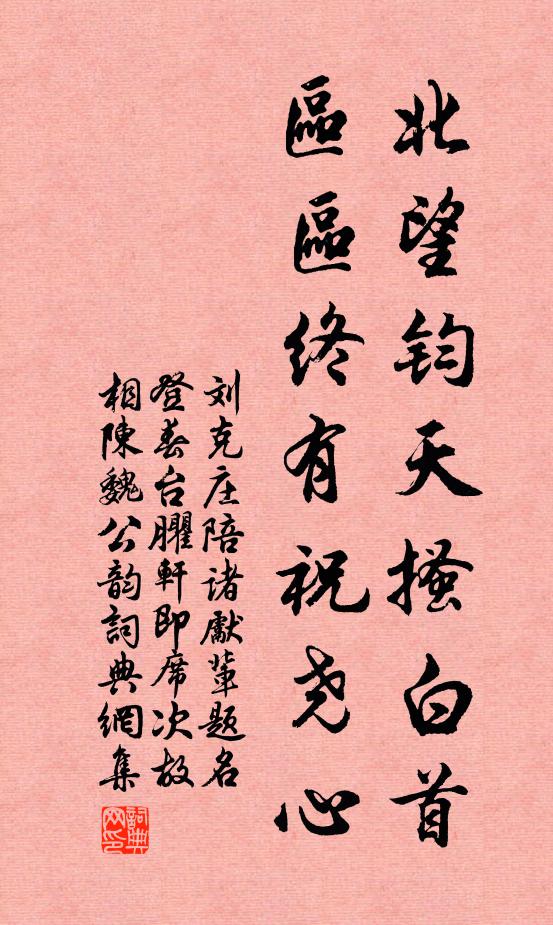 北望鈞天搔白首
區區終有祝尧心
刘克庄陪诸獻輩题名
登春台臞軒即席次故
相陳魏公韵詞典網集
詞典
网印